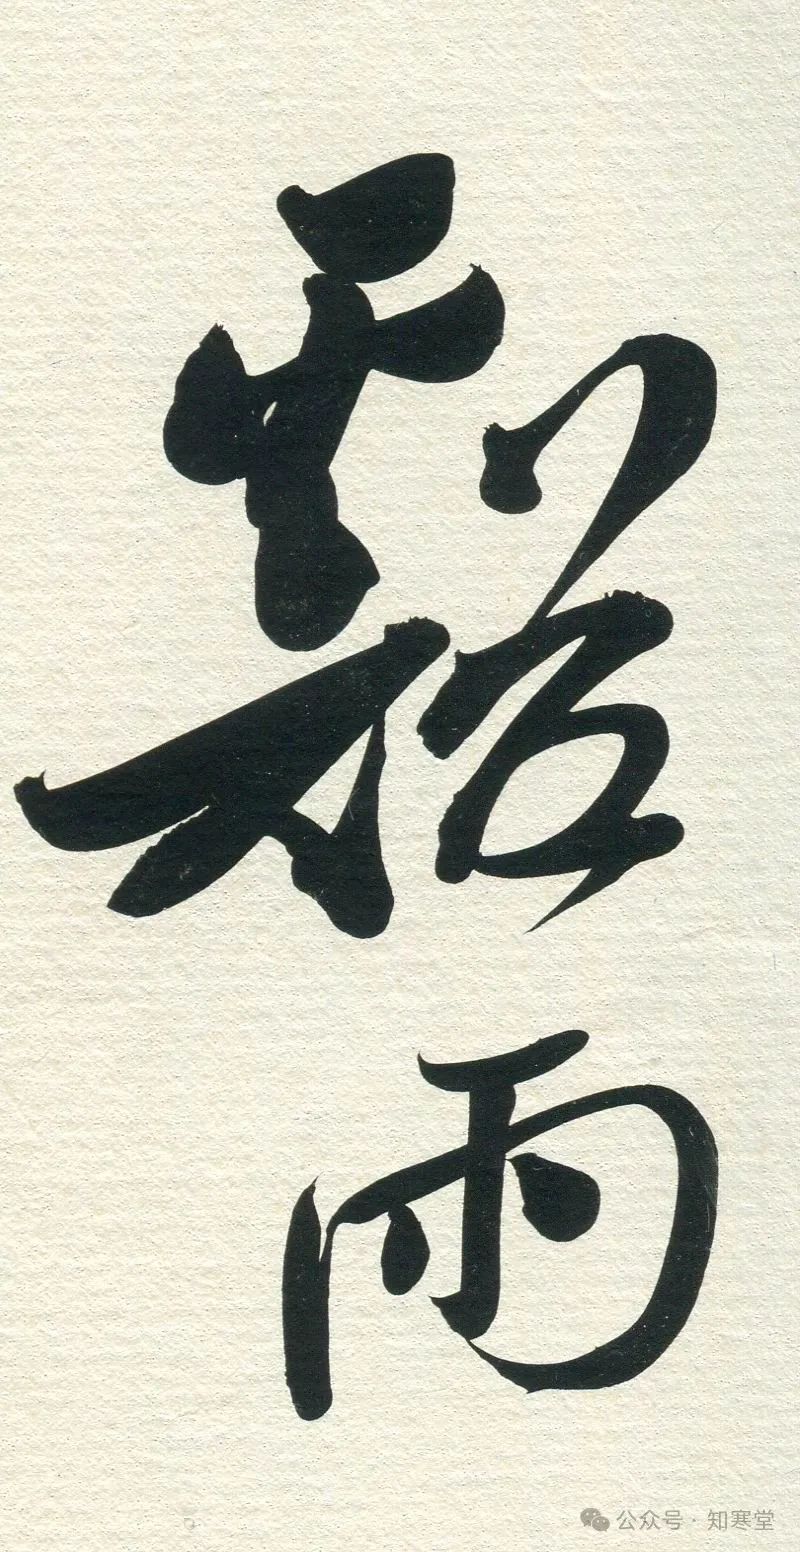 穀雨
公众号·知寒堂